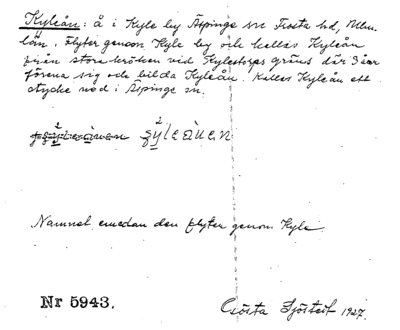 Kyleån: å i Kyle by Äspinge sn Frosta hd, Mlm.
län. Flyter genom Kyle by och kallas Kyleån
från stora kröken vid Kylestorps gräns där 3 åar
förena sig och bilda Kyleån. Kallas Kyleån ett
stycke ned i Äspinge sn.
Namnet emedan den flyter genom Kyle
Nr 5943.
Gösta Sjöstedt 1927.